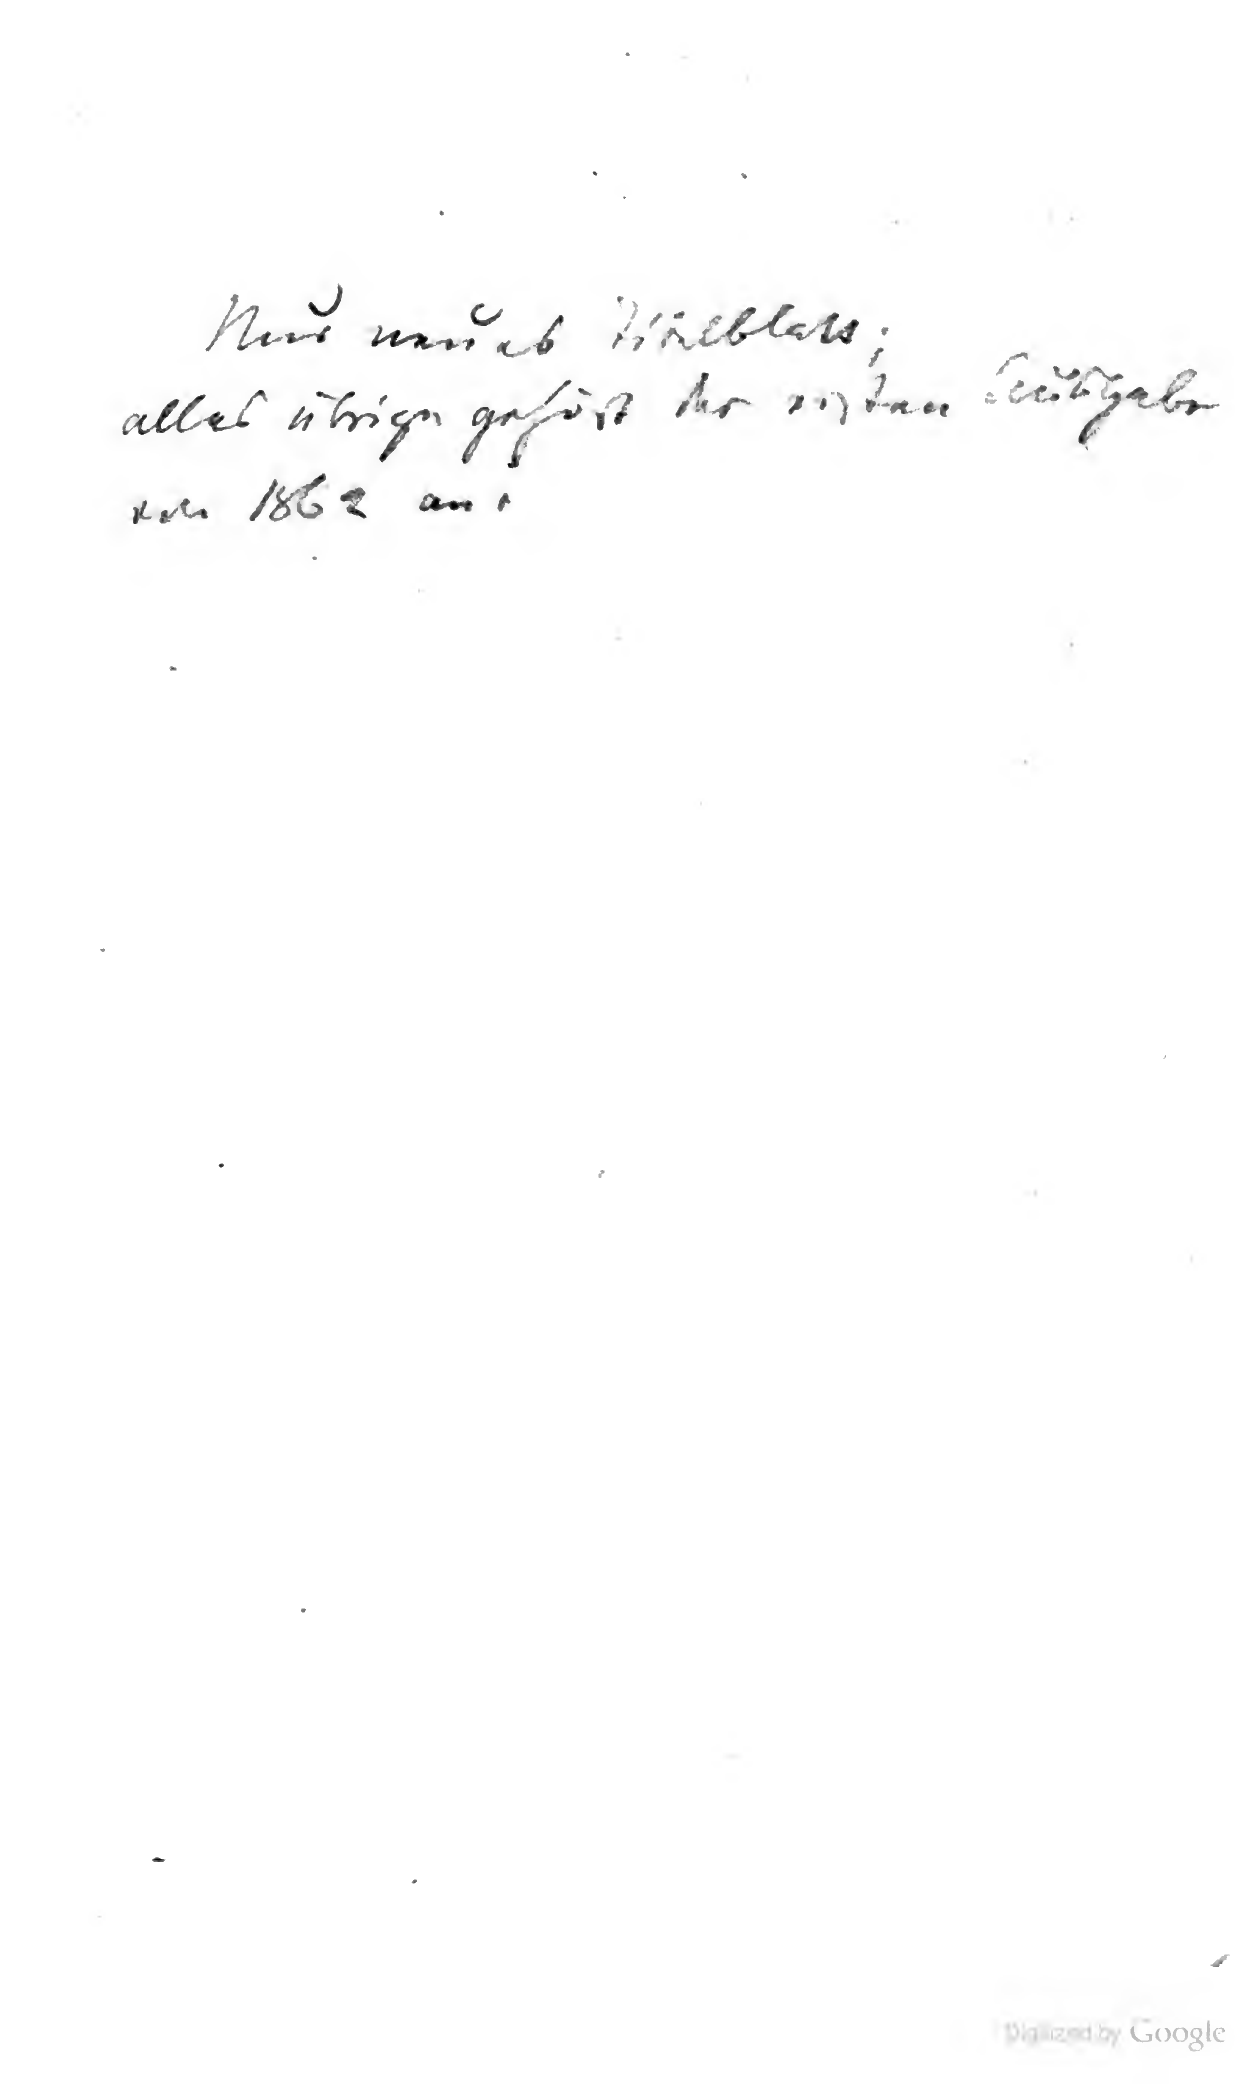 Nur neues Titelblatt;
alles übrige gehört der ersten Ausgabe
von 1862 an.
Digitized by Google